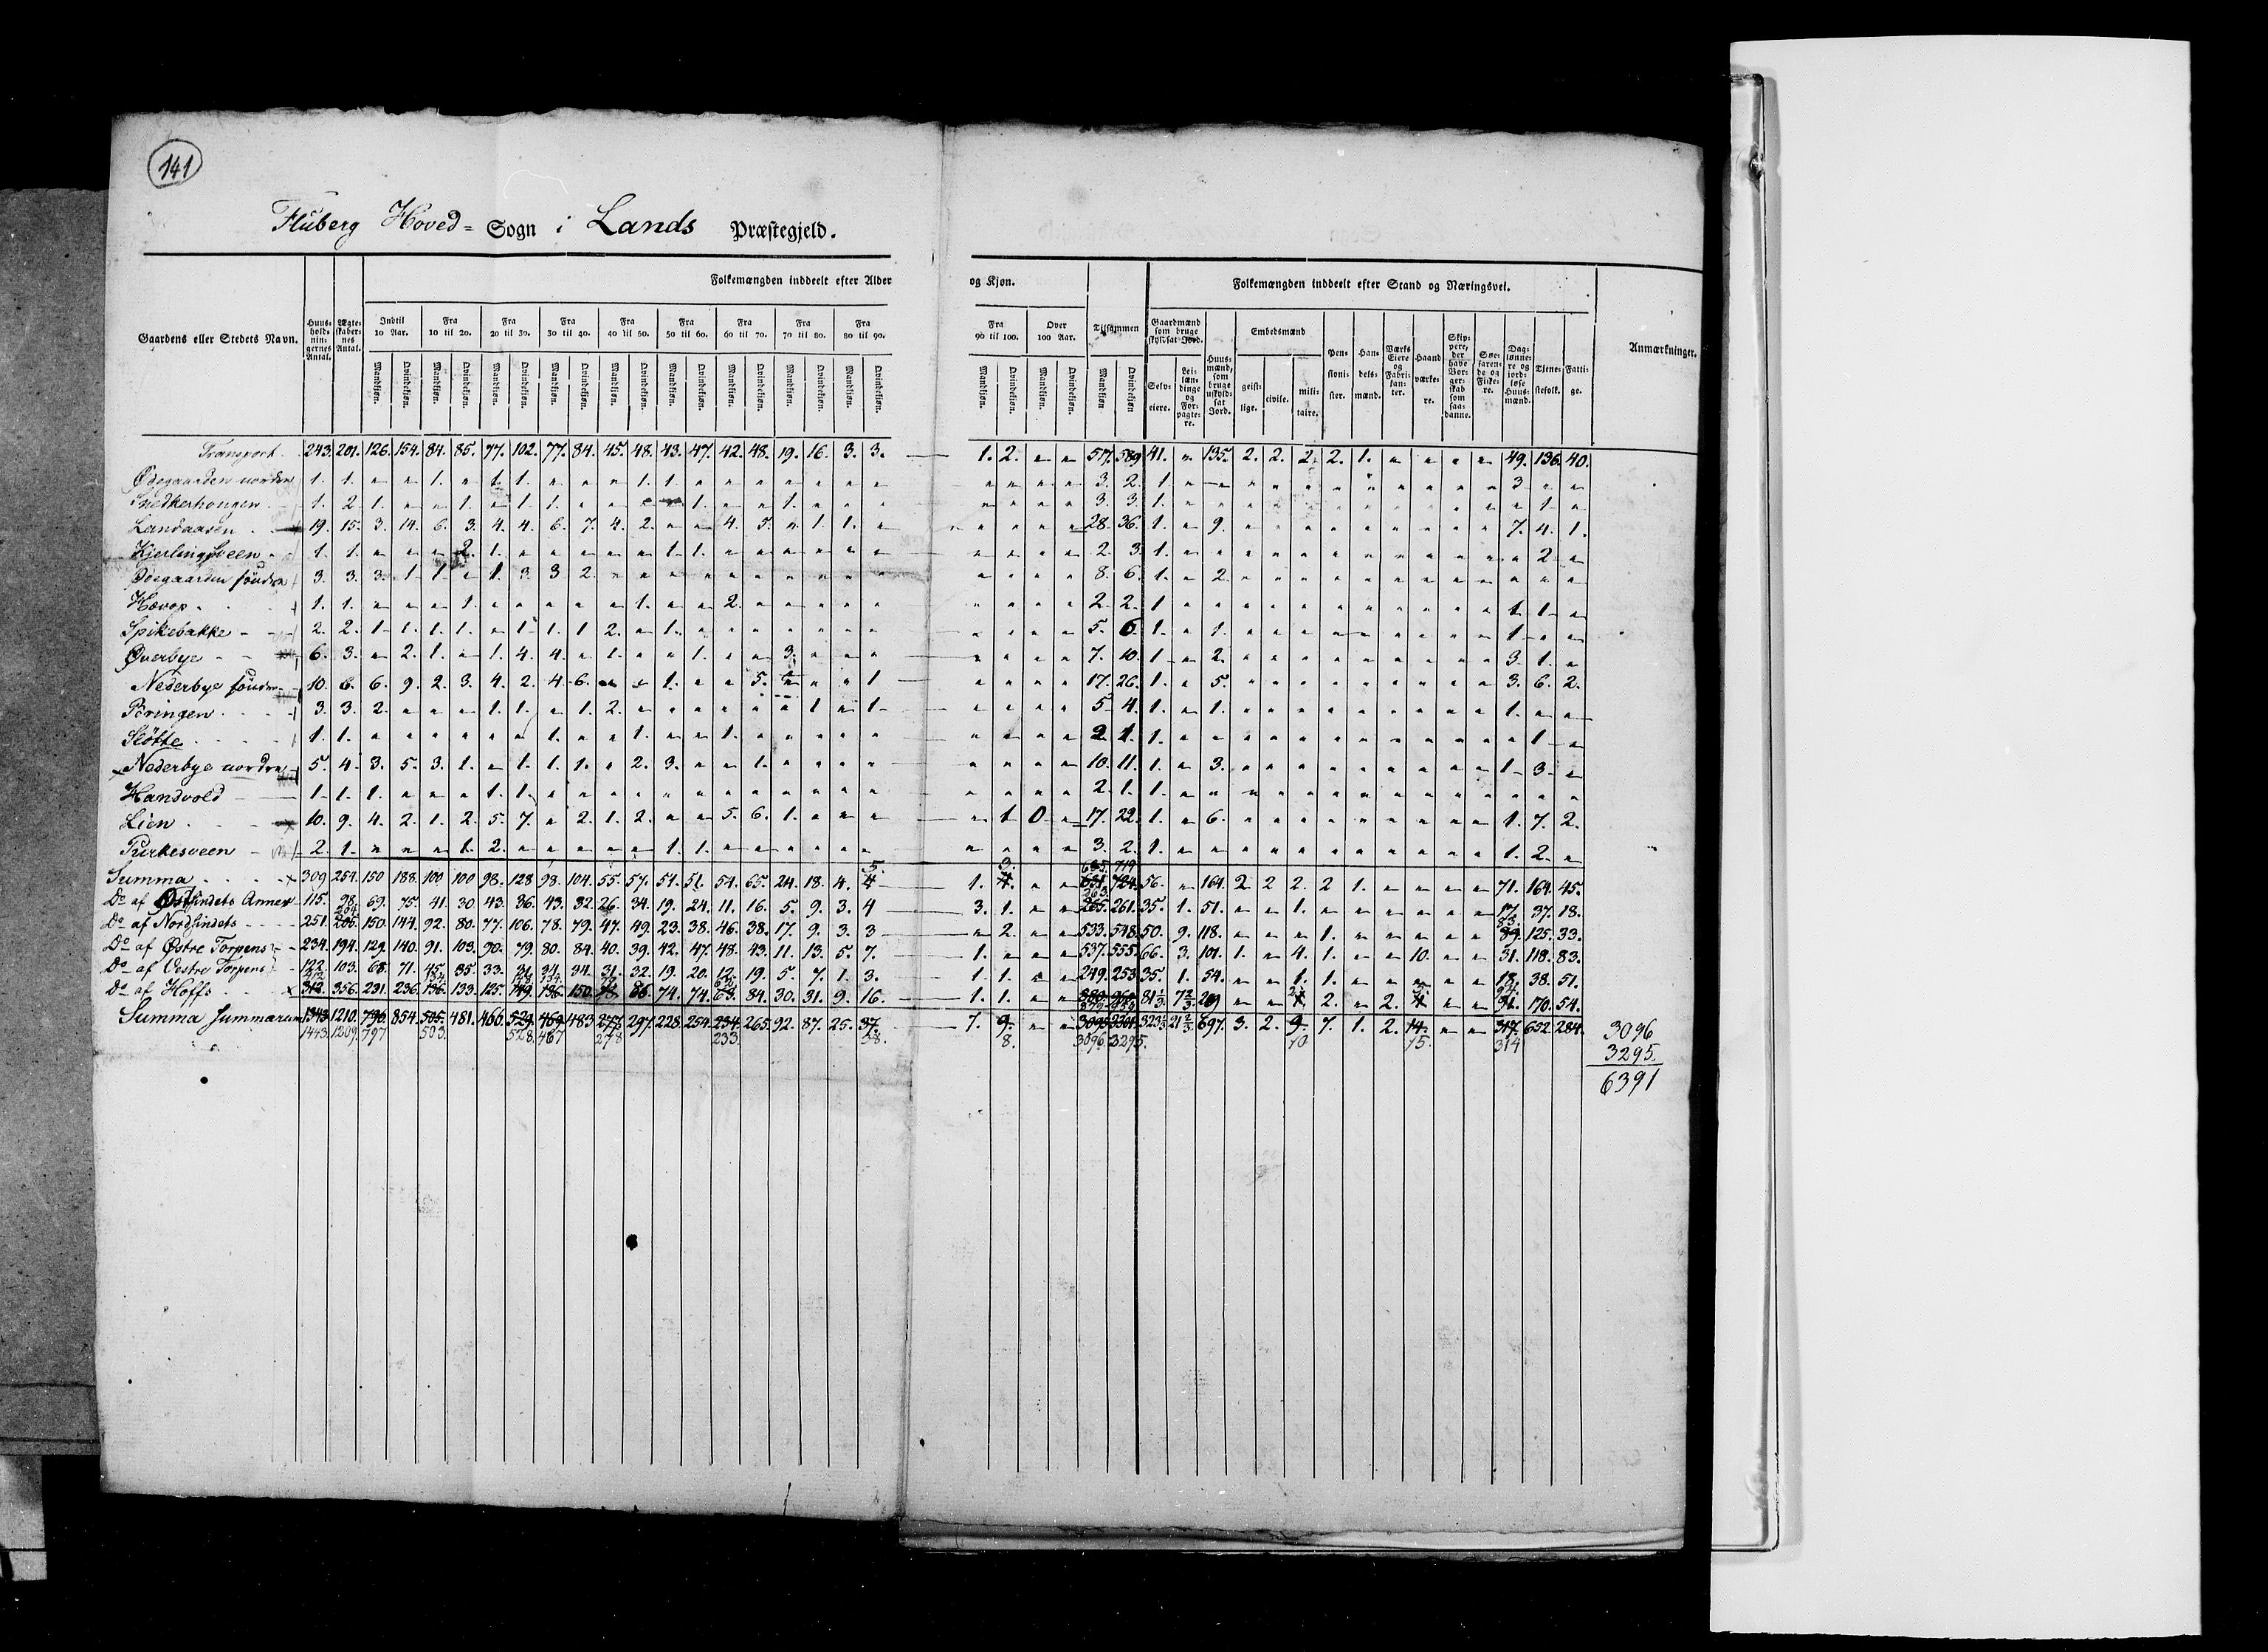 141
Fluberg Hoved= Sogn i Lands Præstegjeld.
Folkemængden inddeelt efter Alder og Kjøn.
Folkemængden inddeelt efter Stand og Næringsvei.
Gaardens eller Stedets Navn.
Huus-holdningernes Antal.
Ægteskabernes Antal.
Indtil 10 Aar.
Fra 10 til 20.
Fra 20 til 30.
Fra 30 til 40.
Fra 40 til 50.
Fra 50 til 60.
Fra 60 til 70.
Fra 70 til 80.
Fra 80 til 90.
Fra 90 til 100.
Over 100 Aar.
Tilsammen
Mandkjøn. Qvindekjøn.
Gaardmænd som bruge skyldsat Jord.
Selveiere.
Leilændinge og Forpagtere.
Huusmænd, som bruge uskyldsat Jord.
Embedsmænd
geistlige. civile. militaire.
Pensionister.
Handelsmænd.
Værks Eiere og Fabrikanter.
Haandværkere.
Skippere, der have Borgerskab som saadanne.
Søefarende og Fiskere.
Daglønnere og jordløse Huusmænd.
Tjenestefolk.
Fattige.
Anmærkninger.
Transport 243. 201. 126. 154. 84. 85. 77. 102. 77. 84. 45. 48. 43. 47. 42. 48. 19. 16. 3. 3. 1. 2. " " 577. 589 41. " 135. 2. 2. 2. 2. 1. " " " " 49. 136. 40.
Ødegaarden nordre 1. 1. " " 1. " 1. 1. " " " 1. 1. " " " " " " " " " " " 3. 2. 1. " " " " " " " " " " " 3 " "
Snedkerhougen 1. 2. 1. " " 1. " 1. 1. " " " " 1. " " 1. " " " " " " " 3. 3. 1. " " " " " " " " " " " " 1 "
Landaasen 19. 15. 3. 14. 6. 3. 4. 4. 6. 7. 4. 2. " " 4. 5. " 1. 1. " " " " " 28. 36. 1. " 9. " " " " " " " " " 7. 4. 1.
Kjerlingsveen 1. 1. " " " 2. 1. " " " " " 1. 1. " " " " " " " " " " 2. 3. 1. " " " " " " " " " " " " 2 "
Ødegaarden söndre 3. 3. 3. 1. 1. " 1. 3. 3 2. " " " " " " " " " " " " " " 8. 6. 1. " 2. " " " " " " " " " " " "
Hovop 1. 1. " " " 1. " " " " " 1. " " 2. " " " " " " " " " 2. 2. 1 " " " " " " " " " " " 1. 1. "
Spikebakke 2. 2. 1. 1. 1. 1. " 1. 1. 1 2. " 1. " " " " " " " " " " " 5. 6. 1. " 1. " " " " " " " " " 1. " "
Øverbye 6. 3. " 2. 1. " 1. 4. 4. " 1. " " 1. " " 3. " " " " " " " 7. 10. 1 " 2. " " " " " " " " " 3. 1. "
Nederbye söndre 10. 6. 6. 9. 2. 3. 4. 2. 4. 6. " " 1. " " 5. " " " 1 " " " " 17. 26. 1. " 5. " " " " " " " " " 3. 6. 2.
3. 3. 2. " " " 1. 1. " 1. 2. " " " " " " 1 " 1 " " " " 5. 4. 1. " 1. " " " " " " " " " 1. " "
Slötte 1. 1. " " " " " " 1. " " 1. " " 1. " " " " " " " " " 2. 1. 1. " " " " " " " " " " " " 1 "
Nederbye nordre 5. 4. 3. 5. 3. 1. " 1. 1. 1. " 2. 3. " " 1. " " " " " " " " 10. 11. 1. " 3. " " " " " " " " " 1. 3. "
Handvold 1. 1. 1. " " " 1. 1. " " " " " " " " " " " " " " " " 2. 1. 1. " " " " " " " " " " " " " "
Lien 10. 9. 4. 2. 1. 2. 5. 7. " 2. 1. 2. " " 5. 6. 1. " " " " 1 0 " 17. 22. 1. " 6. " " " " " " " " " 1. 7. 2.
Purkesveen 2. 1. " " " 1. 2. " " " " " 1. 1. " " " " " " " " " " 3. 2. 1. " " " " " " " " " " " 1. 2. "
5. 3. 635. 719
Summa 309 254. 150 188. 100 100 98. 128 98. 104. 55. 57. 54. 51. 54. 65. 24. 18. 4. 4 1. 4. " " 631. 724. 56. " 164. 2 2 2. 2 1. " " " " 71. 164. 45.
Do af Østsindets Annex 115. 98. 69. 75. 41. 30 43. 36. 43. 32. 26. 34. 19. 24. 11. 16. 5. 9. 3. 4 3. 1. " " 265. 261. 35. 1. 51. " " 1. " " " " " " 17. 37. 18.
263.
204
Do af Nordsindets 251. 205. 150. 144. 92. 80. 77. 106. 78. 79. 47. 49. 23. 38. 46. 38. 17. 9. 3. 3 " 2. " " 533. 548. 50. 9. 118. " " " 1. " " " " " 89. 125. 33.
83.
Do af Østre Torpens 234. 194. 129. 140. 91. 103. 90. 79. 80. 84. 40. 39. 42. 47. 48. 43. 11. 13. 5. 7. 1. " " " 537. 555. 66. 3. 101. 1. " 4. 1. " " 10. " " 31. 118. 83.
Do af Vestre Torpens 122. 103. 68. 71. 45. 35. 33. 31. 34. 34. 31. 32. 19. 20. 12. 19. 5. 7. 1. 3. 1. 1. " " 249. 253 35. 1. 54. " " 1. 1. " " " " " 18. 38. 51.
Do af Hoffs 312. 356. 231. 236. 136. 133. 125. 149. 136. 150. 78. 86. 74. 74. 63. 84. 30. 31. 9. 16. 1. 1. " " 81 1/3. 7 2/3. 209 " " 1. 2. " 2. 4 " " 91. 170. 54.
Summa Summarum 1343. 1210. 796. 854. 505. 481. 466. 529. 469 483 277. 297. 228. 254. 234. 265. 92. 87. 25. 37. 7. 9. " " 3095. 323 1/3 21 2/3 697. 3. 2. 9. 7. 1. 2. 14. " " 317. 652. 284.
1443. 1209. 797 503. 528. 467 278 233. 38. 8. 3096. 3295. 10 15. 314
3096
3295.
6391